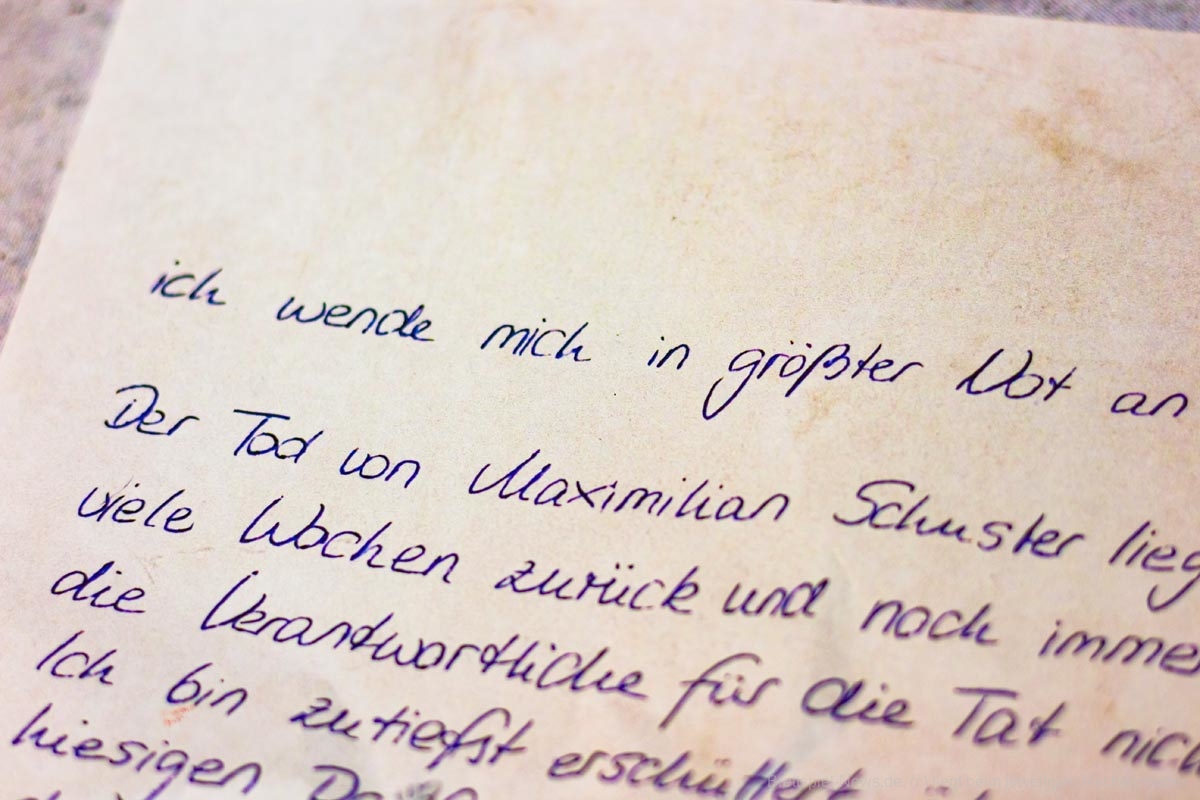 ich wende mich in größter Not an
Der Tod von Maximilian Schuster lieg
viele Wochen zurück und noch imme
die Verantwortliche für die Tat nich
Ich bin zutiefst erschüttert
hiesigen